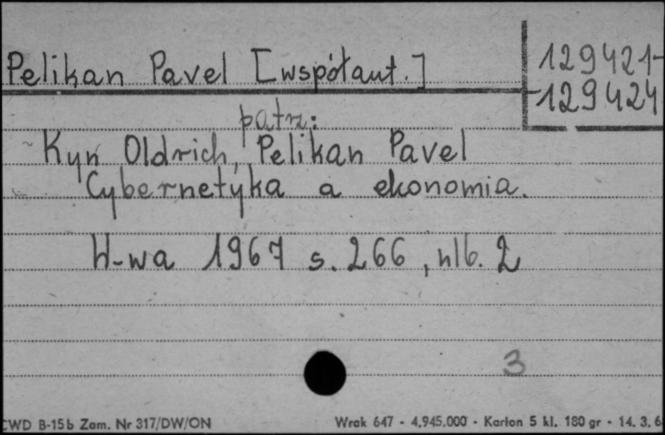 Pelikan Pavel [współaut.]
129421-
-129424
patrz:
Kyn Oldrich, Pelikan Pavel
Cybernetyka a ekonomia.
W-wa 1967 s. 266, nlb. 2
3
CWD B-15b Zam. Nr 317/DW/ON
Wrak 647 - 4.945.000 - Karton 5 kl. 180 gr - 14. 3. 6